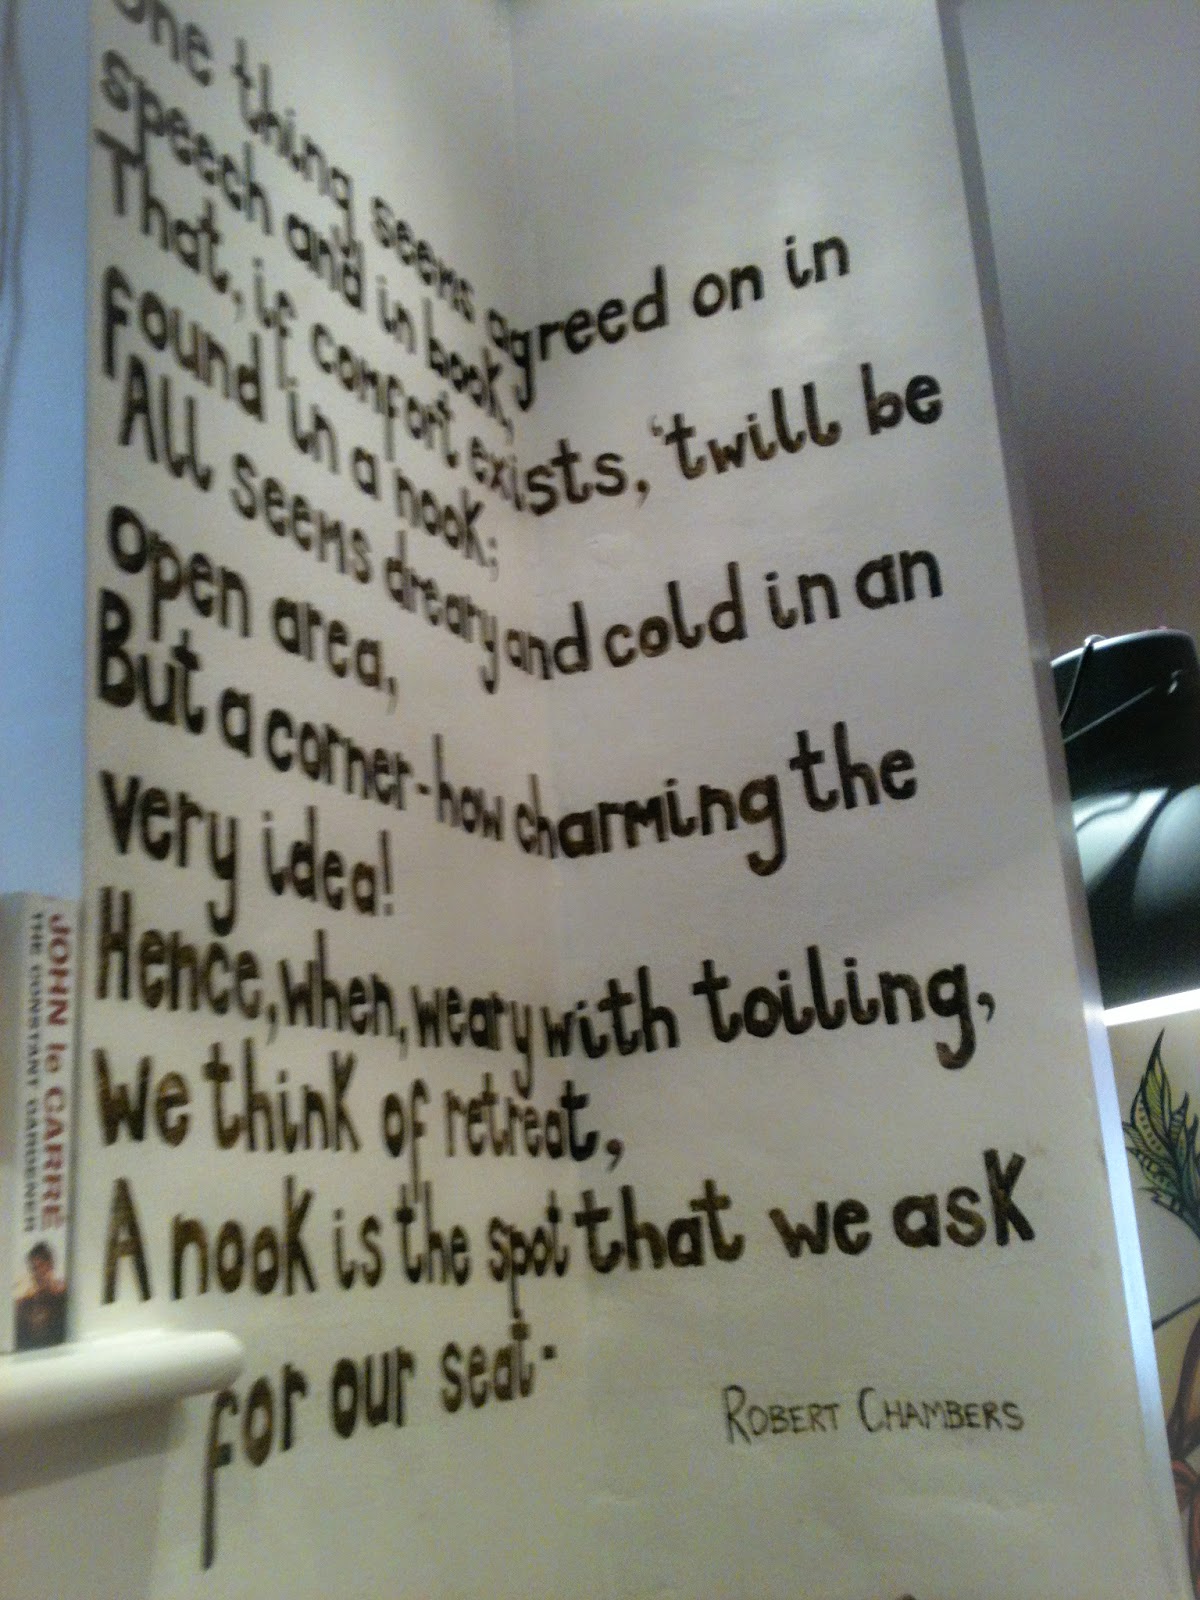 One thing seems agreed on in
speech and in book,
That, if comfort exists, 'twill be
found in a nook;
All seems dreary and cold in an
open area,
But a corner-how charming the
very idea!
Hence, when, weary with toiling,
We think of retreat,
A nook is the spot that we ask
for our seat-
ROBERT CHAMBERS
JOHN le CARRÉ
THE CONSTANT GARDENER